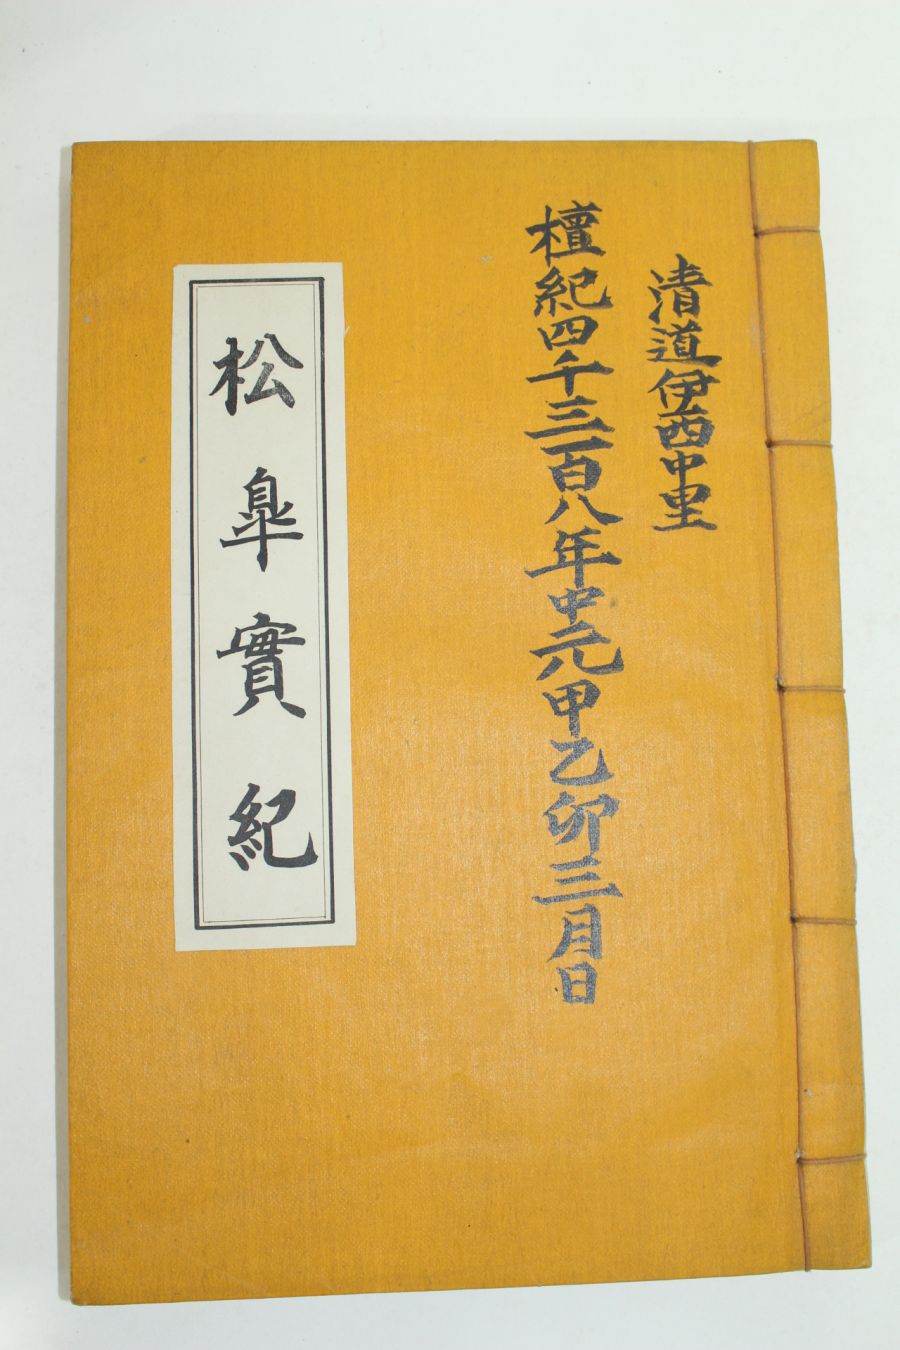 清道伊西中里
檀紀四千三百八年中元甲乙卯三月日
松皐實紀